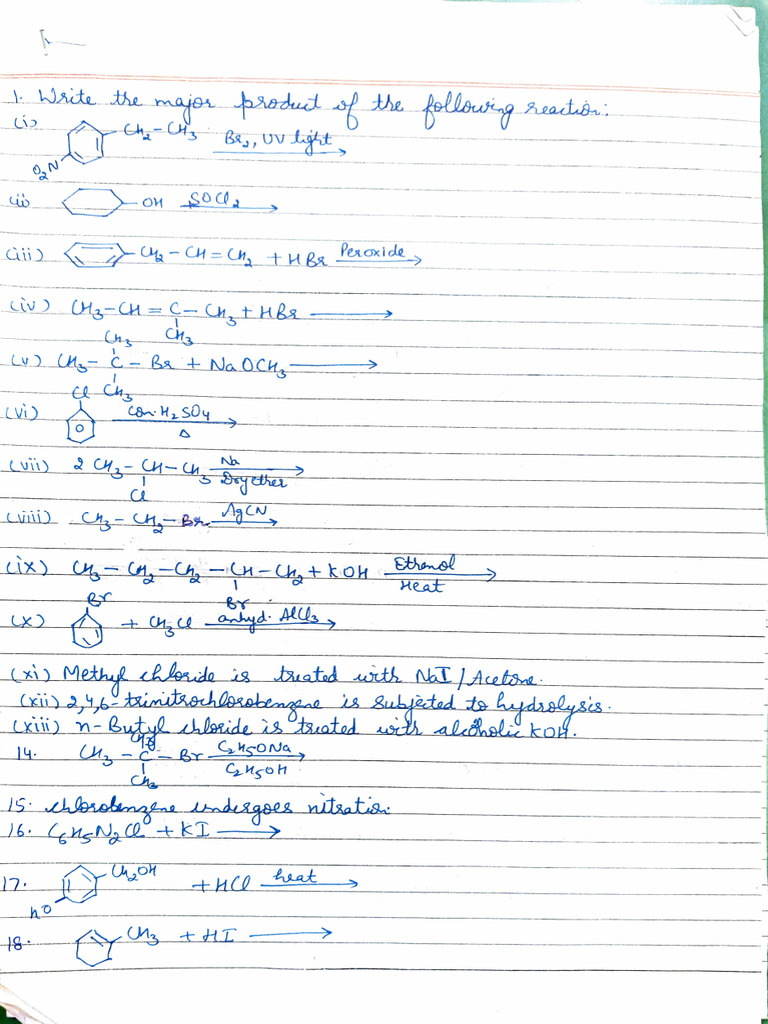 1. Write the major product of the following reaction:
(i) O2N CH2-CH3 Br2, UV light
(ii) OH SOCl2
(iii) CH2-CH=CH2 + HBr Peroxide
(iv) CH3-CH=C-CH3 + HBr
CH3
CH3
(v) CH3-C-Br + NaOCH3
CH3
Cl
(vi) con. H2SO4
Δ
(vii) 2 CH3-CH-CH3 Na
Cl Dry ether
(viii) CH3-CH2-Br AgCN
(ix) CH3-CH2-CH2-CH-CH2 + KOH Ethanol
Br Heat
Br
(x) + CH3Cl anhyd. AlCl3
(xi) Methyl chloride is treated with NaI/Acetone.
(xii) 2,4,6-trinitrochlorobenzene is subjected to hydrolysis.
(xiii) n-Butyl chloride is treated with alcoholic KOH.
CH3
14. CH3-C-Br C2H5ONa
CH3 C2H5OH
15. chlorobenzene undergoes nitration.
16. C6H5N2Cl + KI
17. CH2OH + HCl heat
HO
18. CH3 + HI